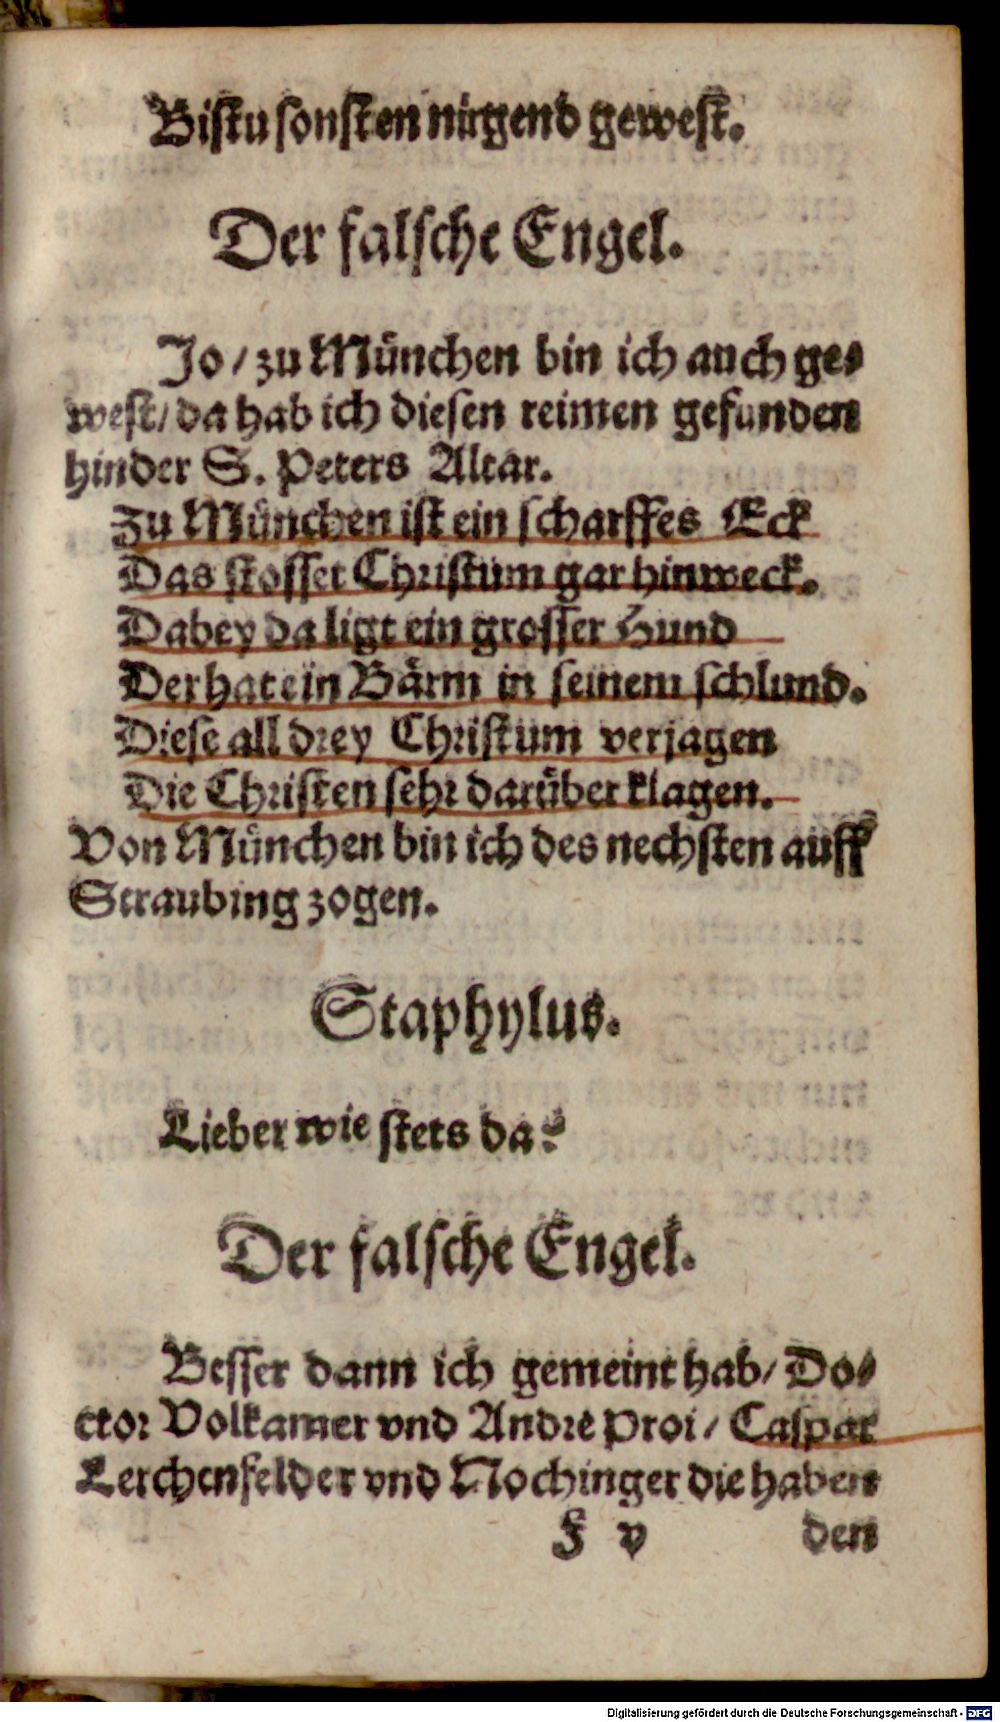 Bistu sonsten nirgend gewest.
Der falsche Engel.
Jo / zu München bin ich auch ge-
west / da hab ich diesen reimen gefunden
hinder S. Peters Altar.
Zu München ist ein scharffes Eck
Das stosset Christum gar hinweck.
Dabey da ligt ein grosser Hund
Der hat ein Bärm in seinem schlund.
Diese all drey Christum verjagen
Die Christen sehr darüber klagen.
Von München bin ich des nechsten auff
Straubing zogen.
Staphylus.
Lieber wie stets da?
Der falsche Engel.
Besser dann ich gemeint hab / Do-
ctor Volkamer vnd Andre Proi / Caspar
Lerchenfelder vnd Nochinger die haben
F v den
Digitalisierung gefördert durch die Deutsche Forschungsgemeinschaft - DFG